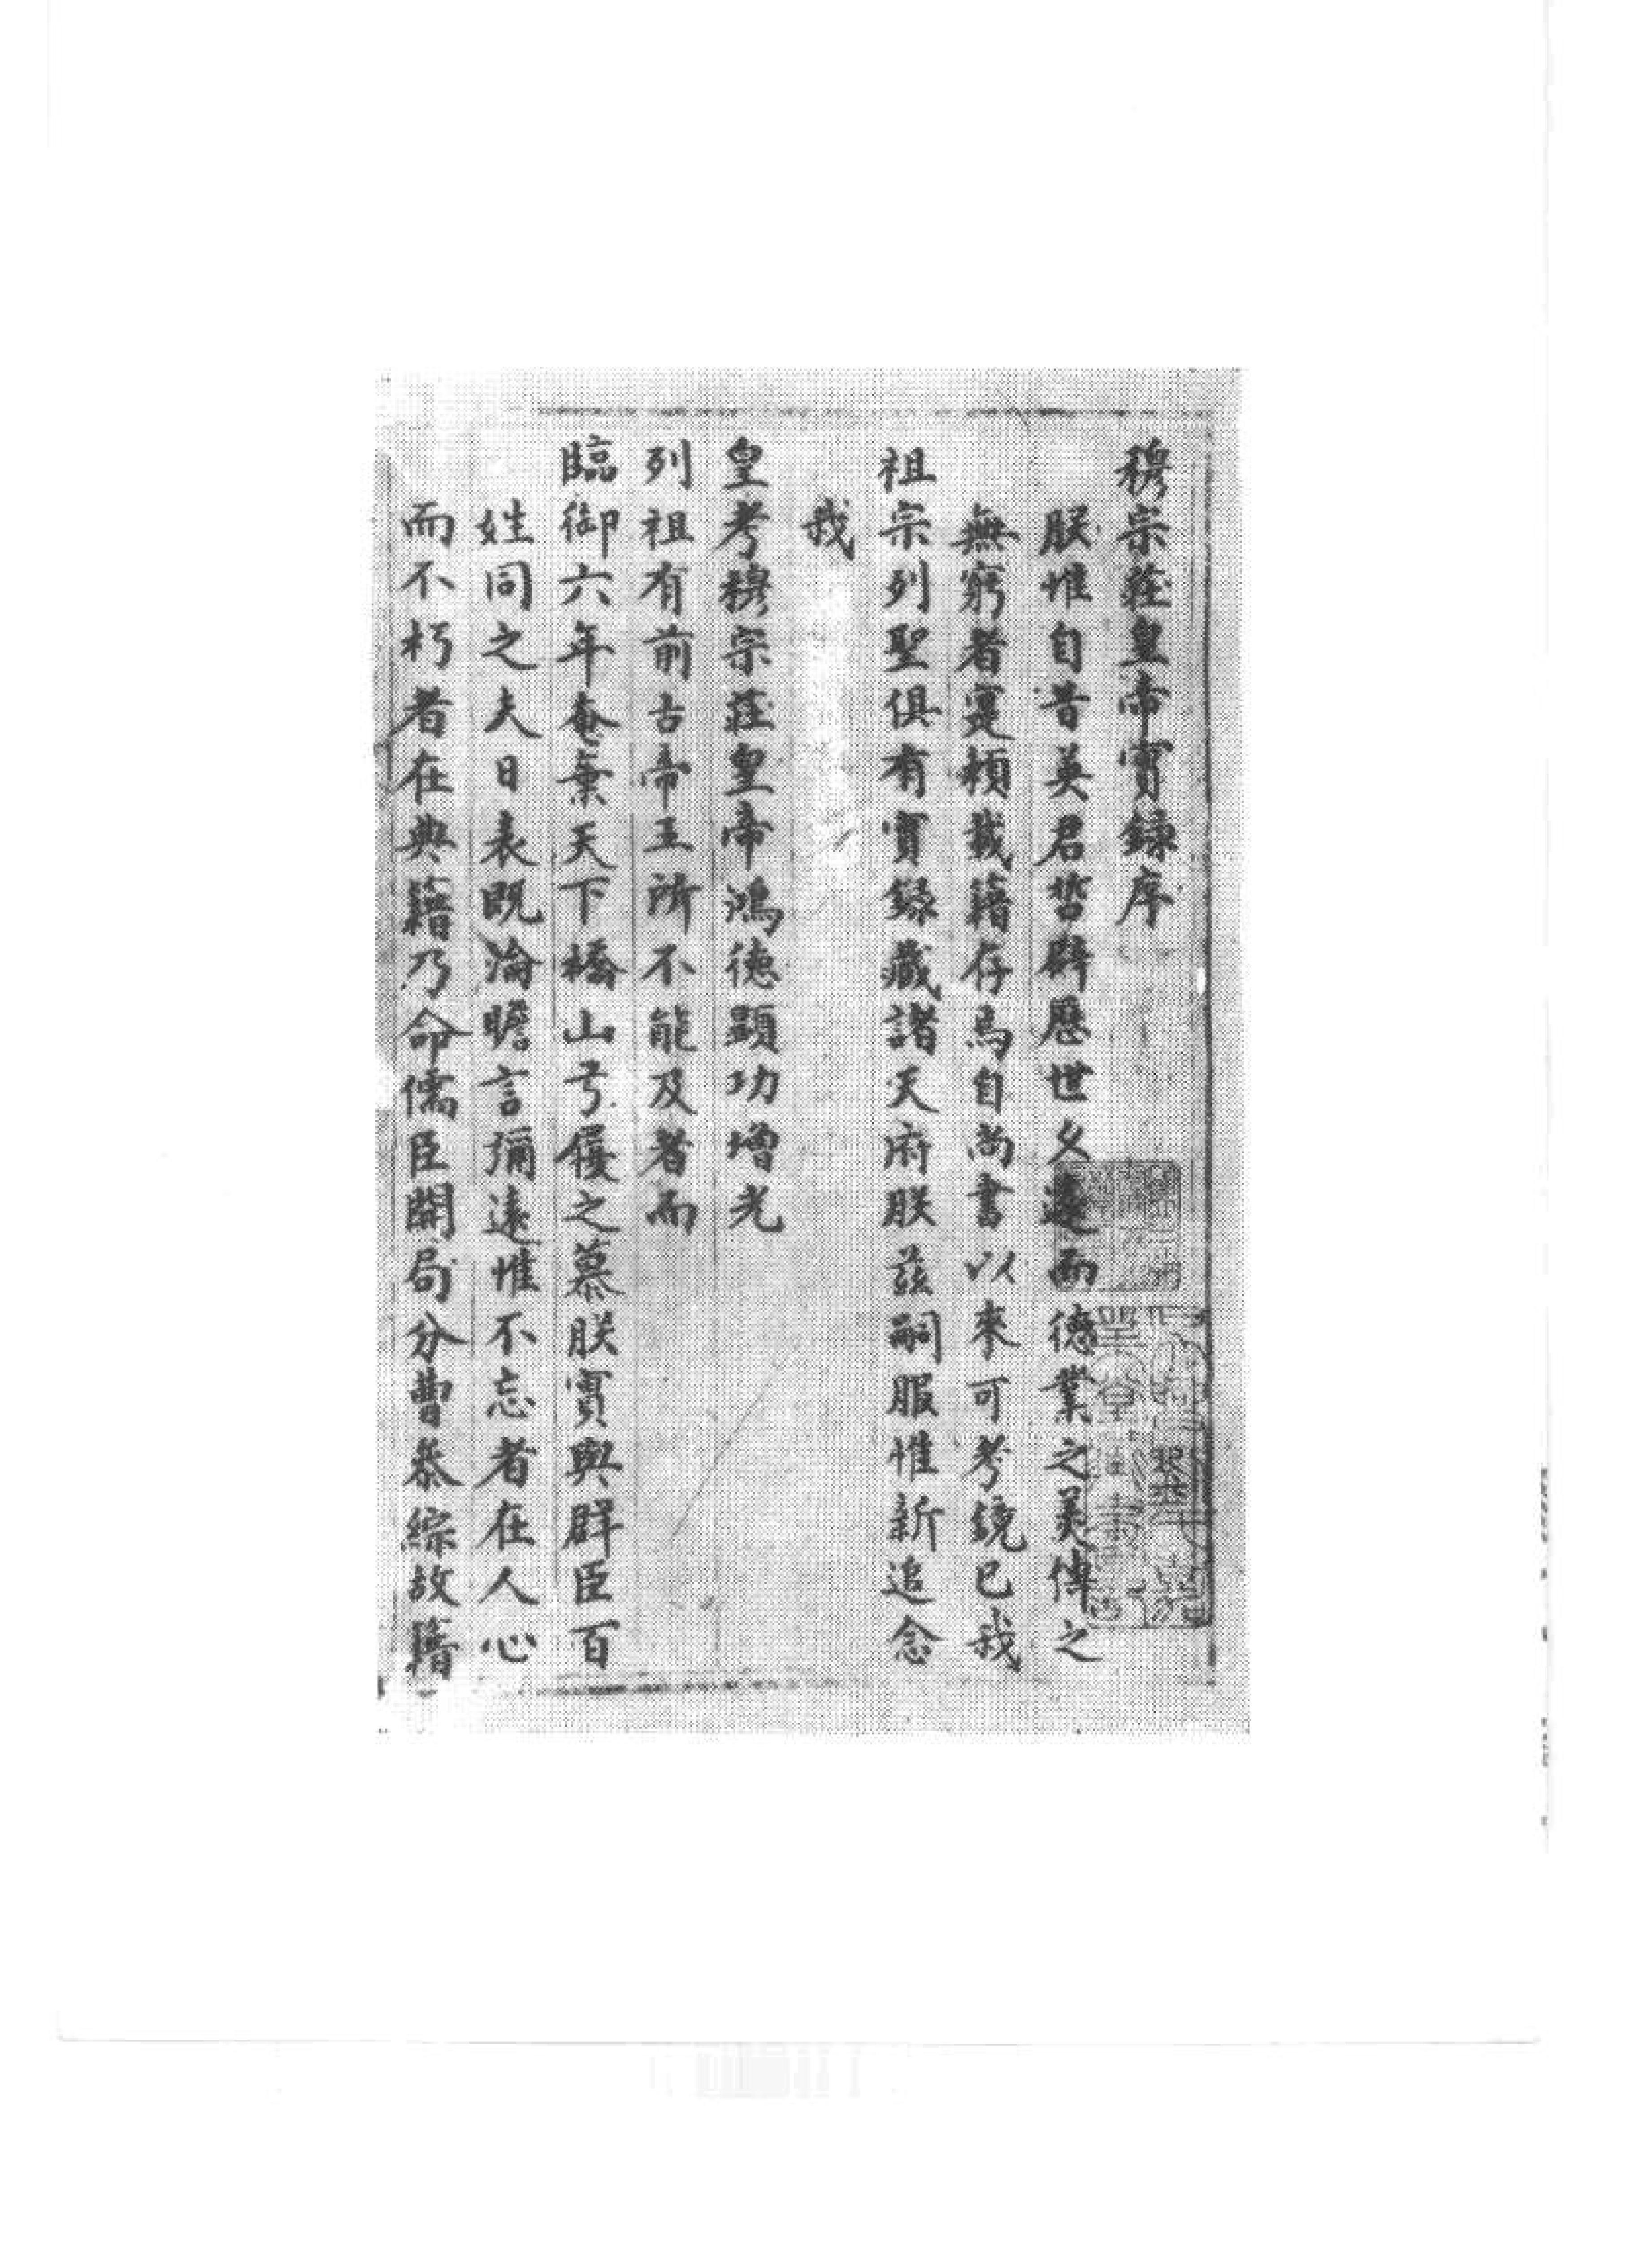 穆宗莊皇帝實錄序
朕惟自昔英君哲辟歷世久遠而德業之美傳之
無窮者寔賴載籍存焉自尚書以來可考鏡已我
祖宗列聖俱有實錄藏諸天府朕茲嗣服惟新追念
我
皇考穆宗莊皇帝鴻德顯功增光
列祖有前古帝王所不能及者而
臨御六年奄棄天下橋山弓之慕朕實與群臣百
姓同之夫日表既淪瞻言彌遠惟不忘者在人心
而不朽者在典籍乃命儒臣開局分曹叅綜故牘